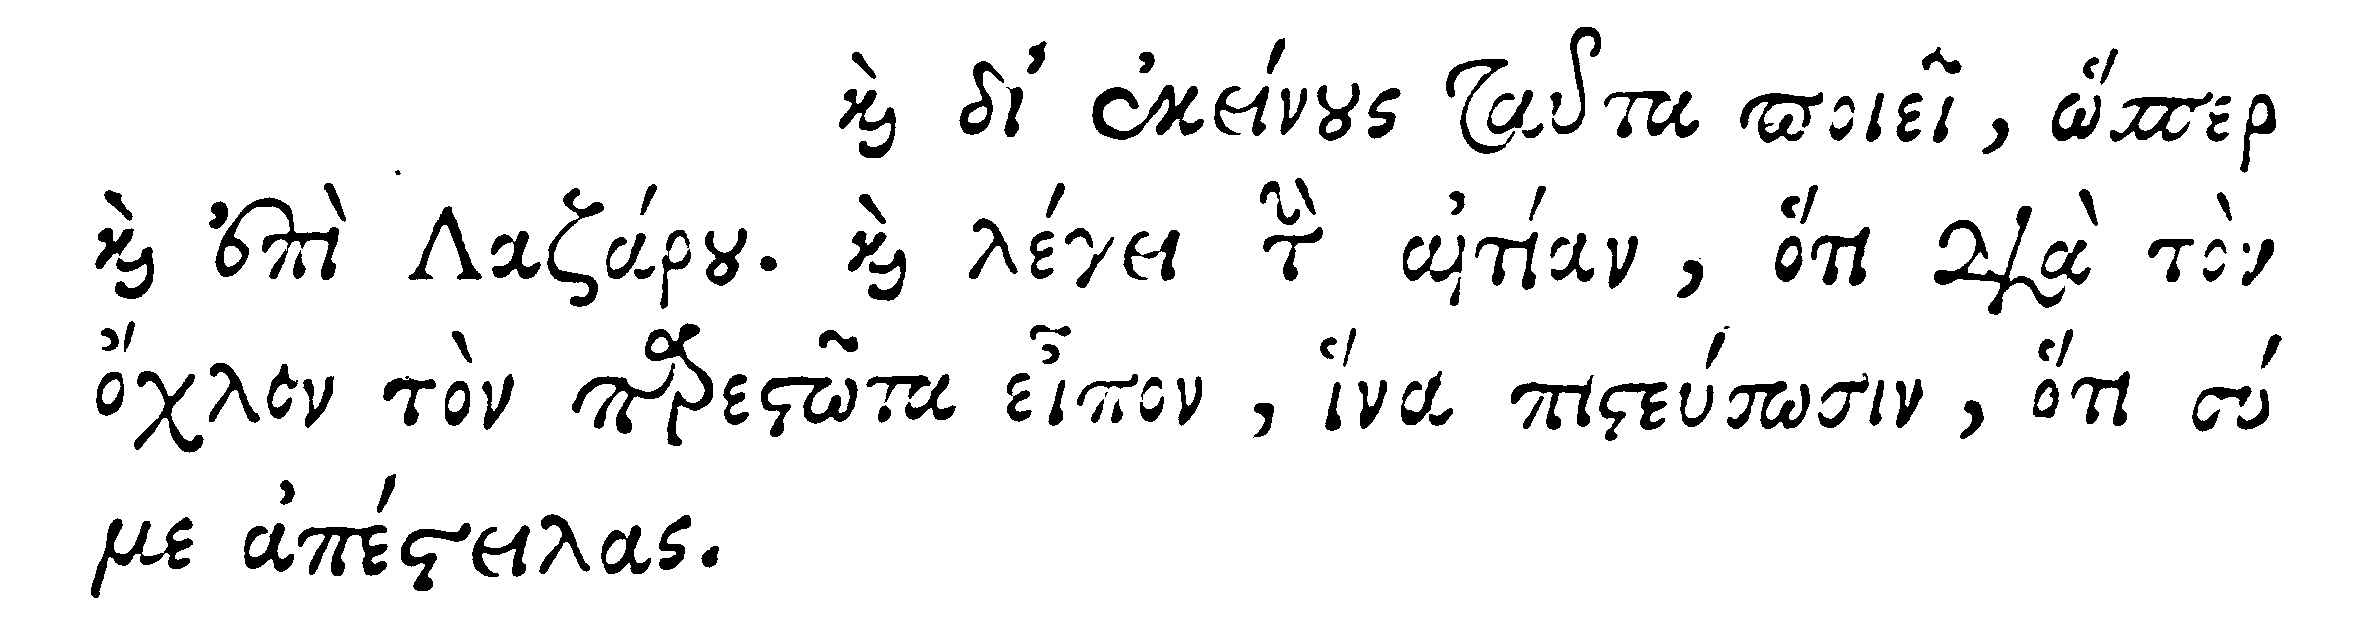 καὶ δι' ἐκείνους ταῦτα ποιεῖ, ὥσπερ
καὶ ἐπὶ Λαζάρου. καὶ λέγει τὴν αἰτίαν, ὅτι διὰ τὸν
ὄχλον τὸν παρεστῶτα εἶπον, ἵνα πιστεύσωσιν, ὅτι σύ
με ἀπέστειλας.